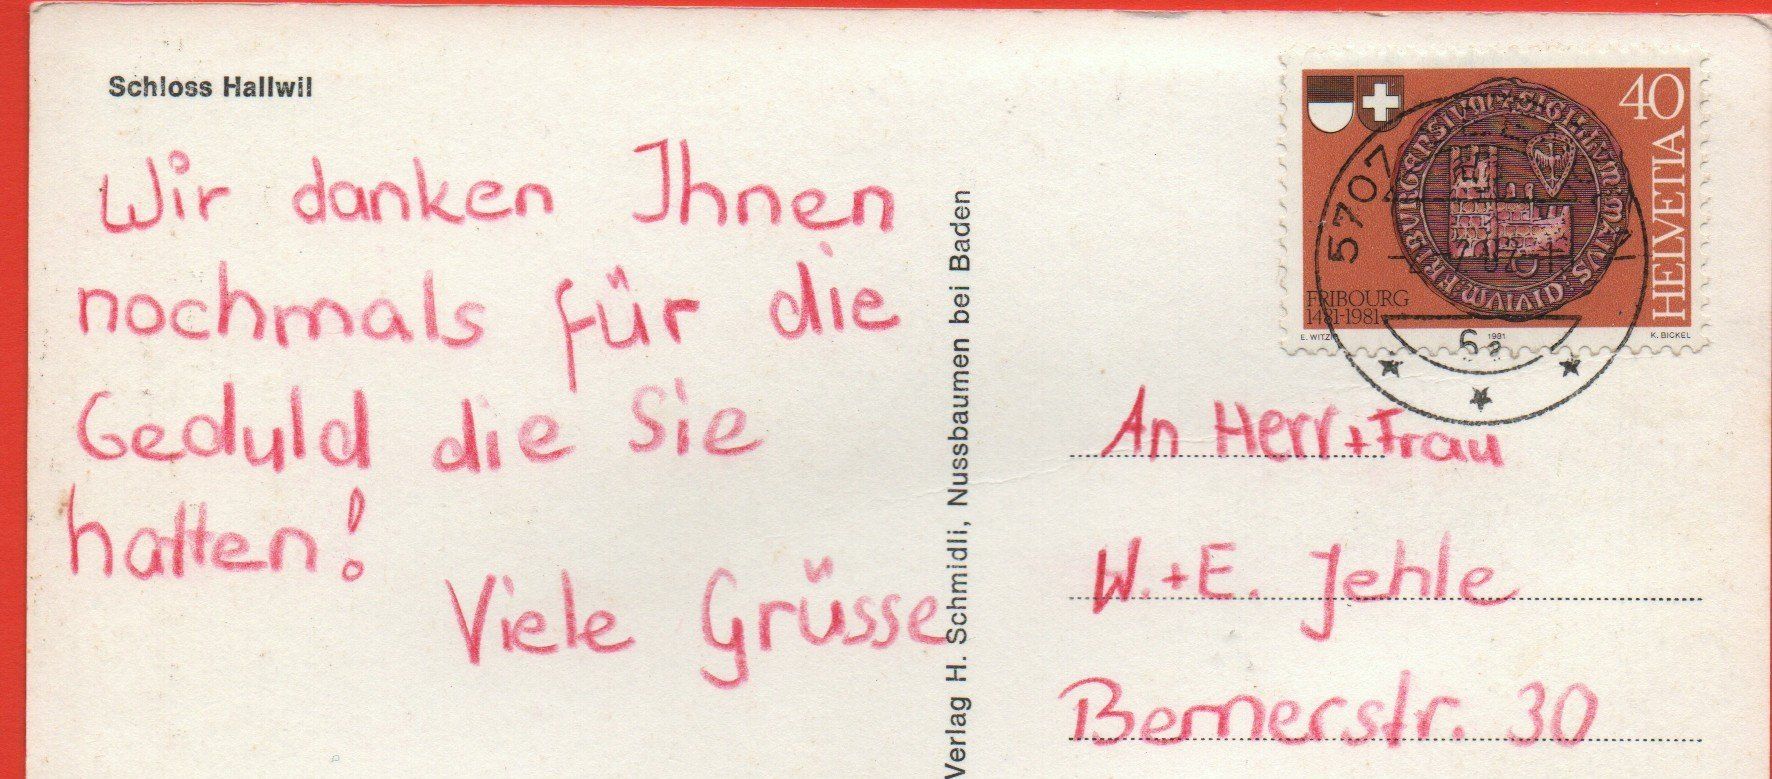 Schloss Hallwil
Wir danken Ihnen
nochmals für die
Geduld die Sie
hatten!
Viele Grüsse
Verlag H. Schmidli, Nussbaumen bei Baden
40
HELVETIA
FRIBOURG
1481-1981
E. WITZIG
1981
K. BICKEL
5707
6a
An Herr + Frau
W. + E. Jehle
Bernerstr. 30